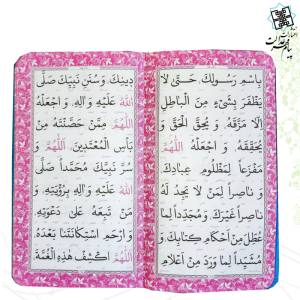 بِاسْمِ رَسُولِكَ، حَتّىٰ لَا
يَظْفَرَ بِشَيْءٍ مِنَ الْبَاطِلِ
اِلّا مَزَّقَهُ، وَ يُحِقَّ الْحَقَّ وَ
يُحَقِّقَهُ، وَ اجْعَلْهُ اللّٰهُمَّ
مَفْزَعاً لِمَظْلُومِ عِبَادِكَ،
وَ نَاصِراً لِمَنْ لَا يَجِدُ لَهُ
نَاصِراً غَيْرَكَ، وَ مُجَدِّداً لِمَا
عُطِّلَ مِنْ اَحْكَامِ كِتَابِكَ، وَ
مُشَيِّداً لِمَا وَرَدَ مِنْ اَعْلَامِ
دِينِكَ، وَ سُنَنِ نَبِيِّكَ صَلَّى
اللهُ عَلَيْهِ وَ الِهِ، وَ اجْعَلْهُ
اللّٰهُمَّ مِمَّنْ حَصَّنْتَهُ مِنْ
بَأْسِ الْمُعْتَدِينَ، اَللّٰهُمَّ وَ
سُرَّ نَبِيَّكَ مُحَمَّداً صَلَّى
اللهُ عَلَيْهِ وَ الِهِ بِرُؤْيَتِهِ، وَ
مَنْ تَبِعَهُ عَلىٰ دَعْوَتِهِ،
وَ ارْحَمِ اسْتِكَانَتَنَا بَعْدَهُ،
اَللّٰهُمَّ اكْشِفْ هٰذِهِ الْغُمَّةَ